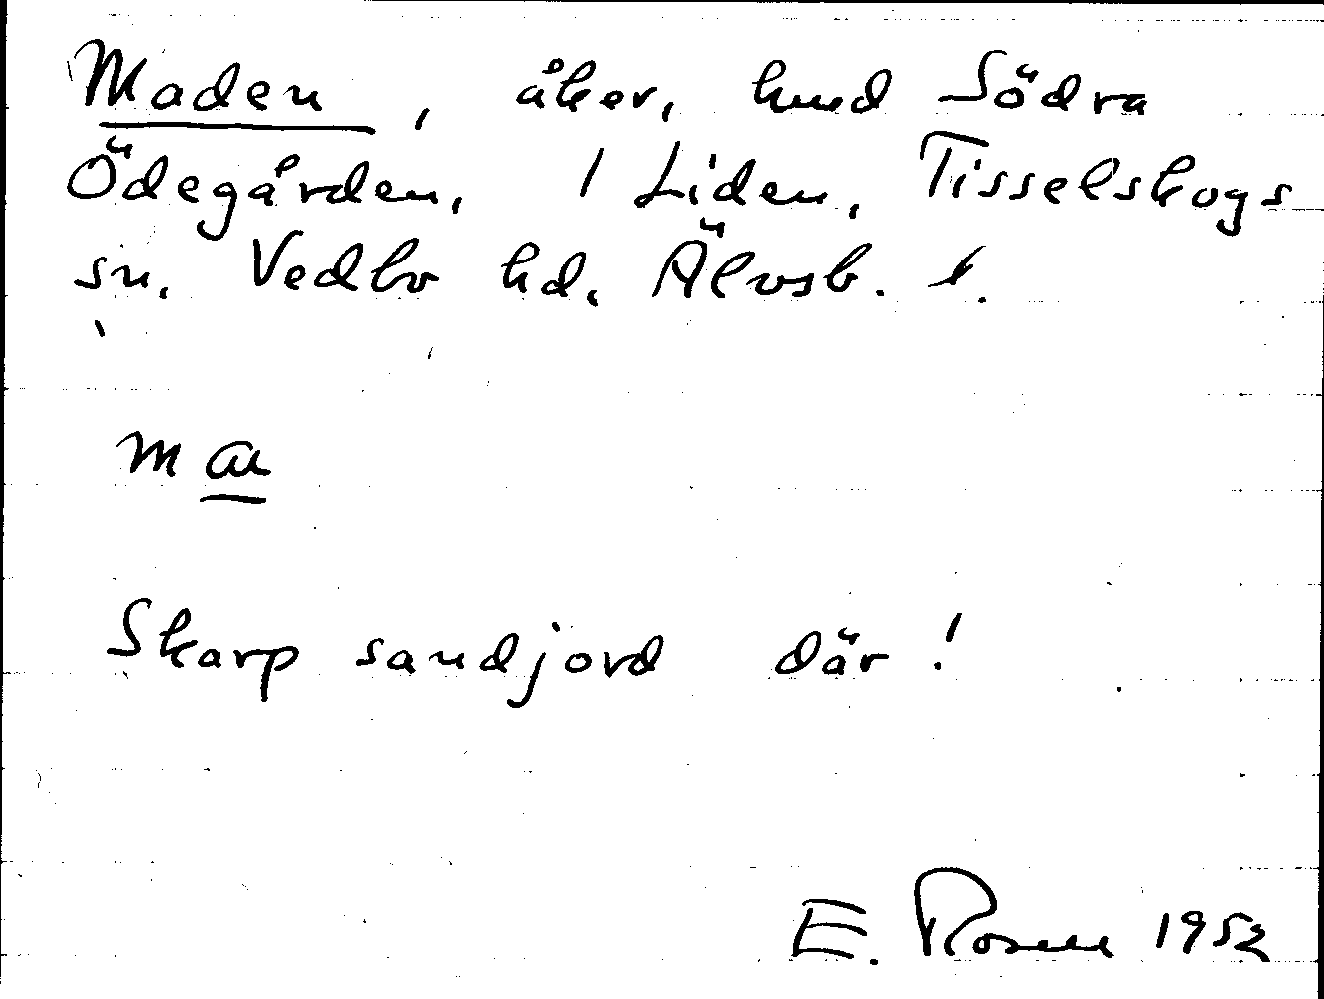 Maden, åker, hmd Södra
Ödegården, 1 Liden, Tisselskogs
sn. Vedbo hd. Älvsb. l.
Skarp sandjord där!
E. Rosen 1952